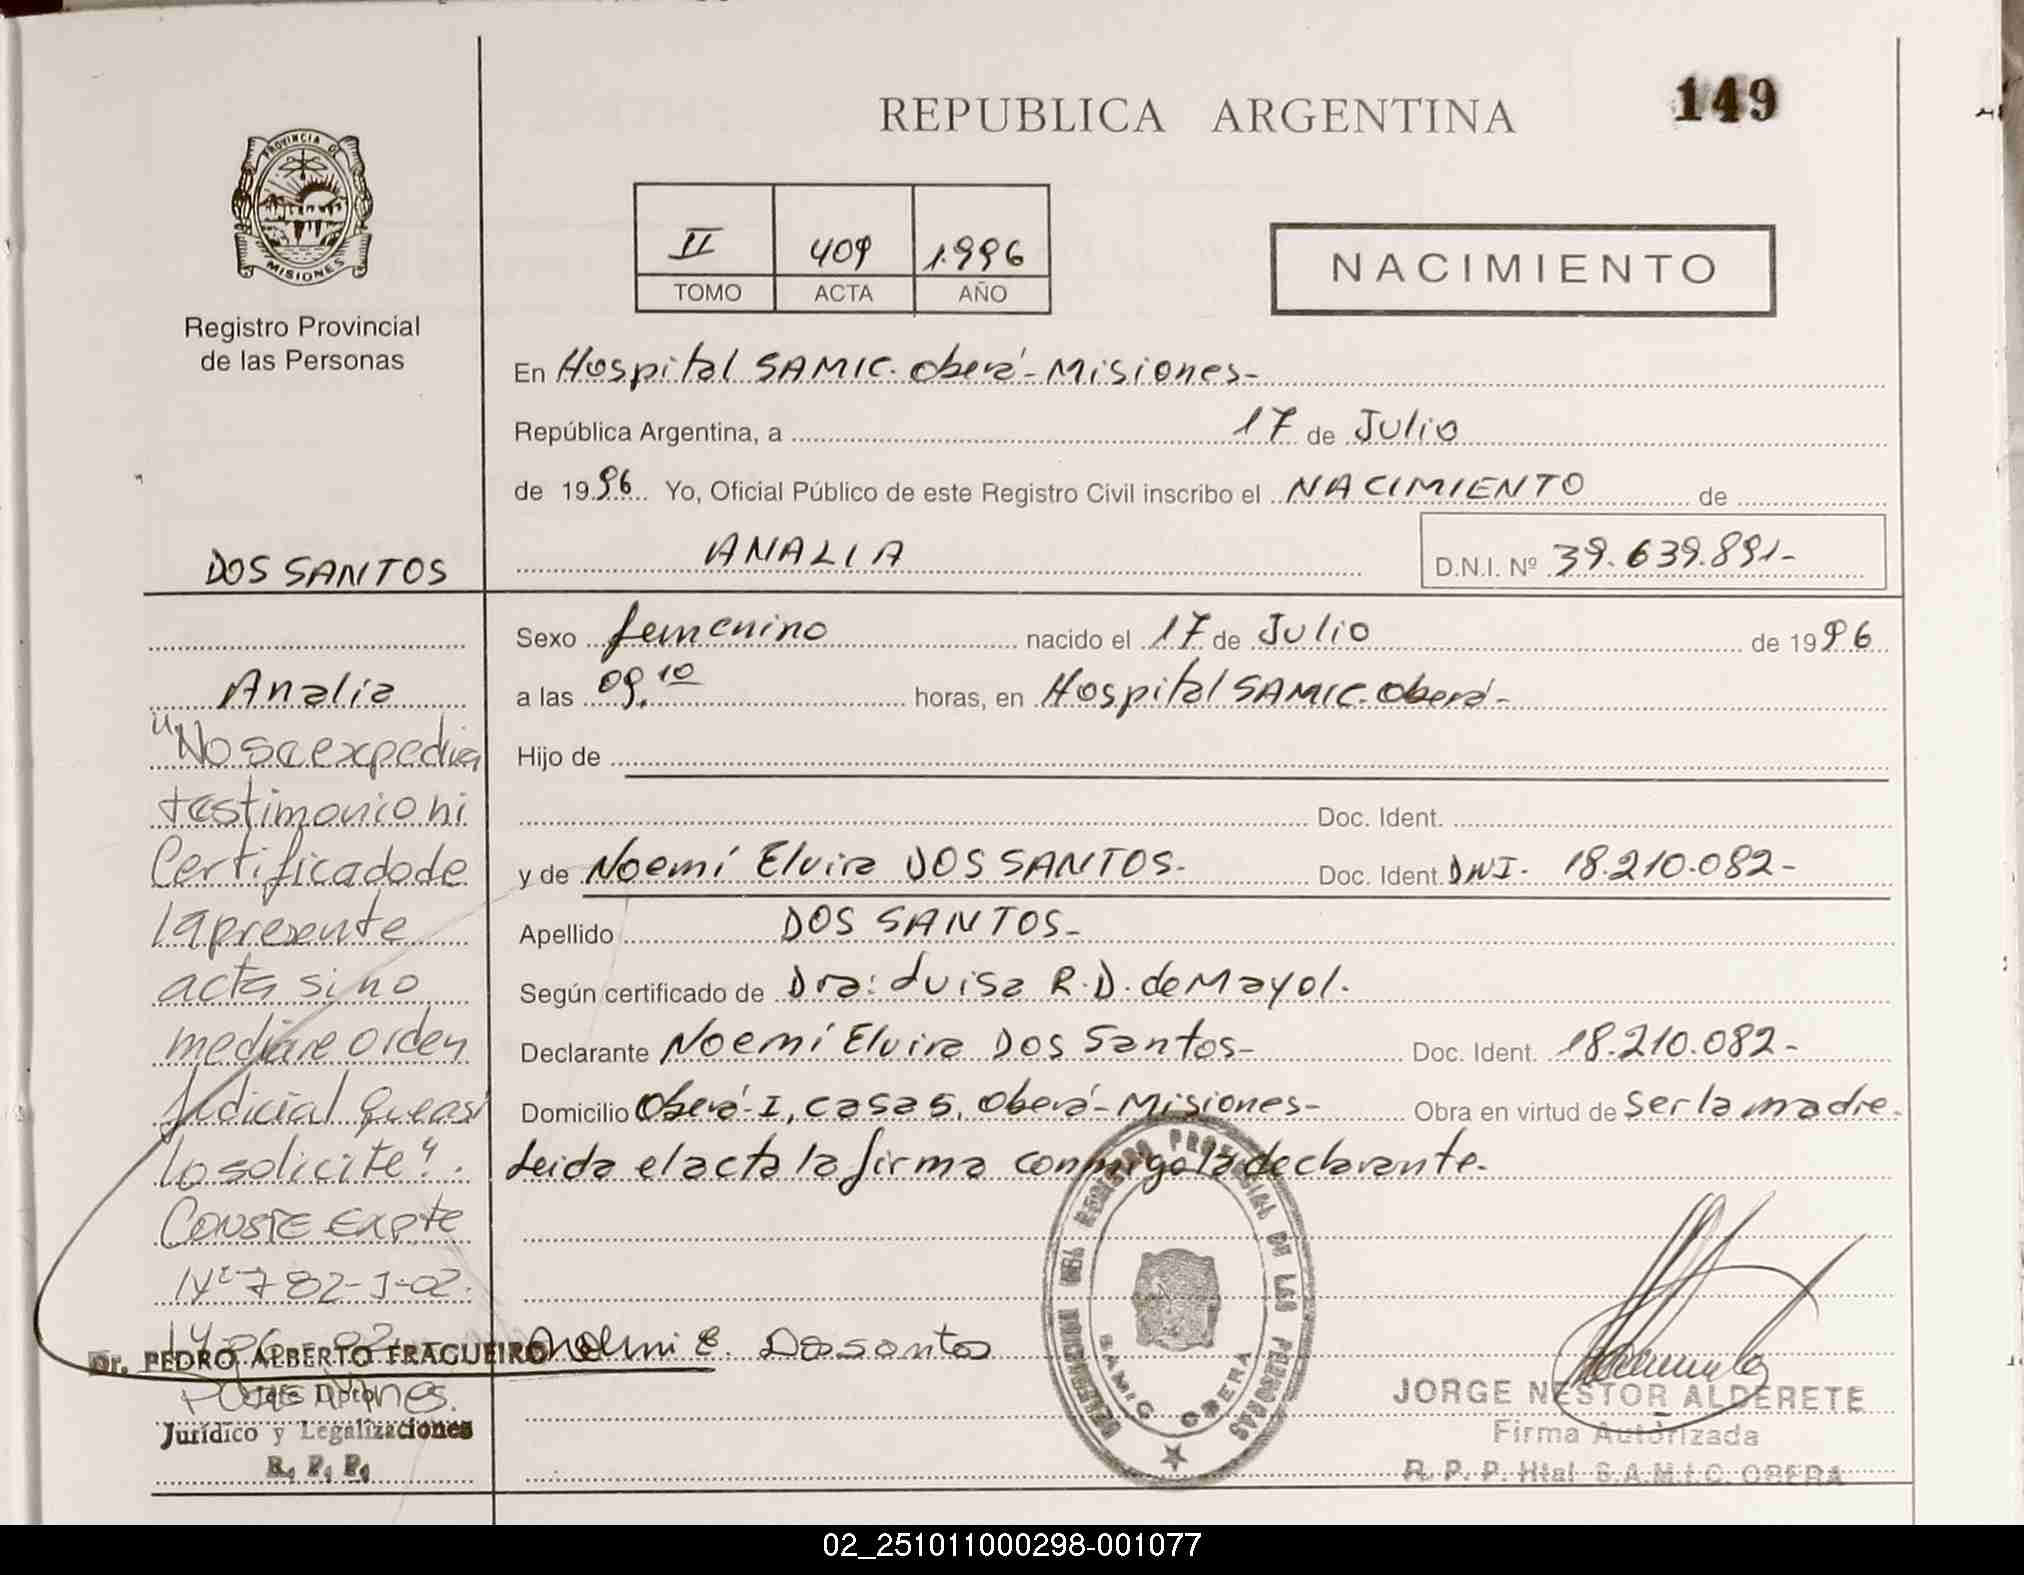 149
REPUBLICA ARGENTINA
PROVINCIA DE
MISIONES
Registro Provincial
de las Personas
II 409 1.996
TOMO ACTA AÑO
NACIMIENTO
En Hospital SAMIC. Oberá - Misiones -
República Argentina, a 17 de Julio
de 1996 Yo, Oficial Público de este Registro Civil inscribo el NACIMIENTO de
ANALIA D.N.I. Nº 39.639.891-
Sexo femenino nacido el 17 de Julio de 1996
a las 09.10 horas, en Hospital SAMIC. Oberá -
Hijo de
Doc. Ident.
y de Noemí Elvira DOS SANTOS - Doc. Ident. DNI. 18.210.082-
Apellido DOS SANTOS -
Según certificado de Dra: Luisa R.D. de Mayol.
Declarante Noemí Elvira Dos Santos - Doc. Ident. 18.210.082-
Domicilio Oberá - I, casa 5, Oberá - Misiones - Obra en virtud de ser la madre.
Leida el acta la firma conmigo la declarante.
DOS SANTOS
Analia
"No se expedira
testimonio ni
Certificado de
la presente
acta si no
mediare orden
Judicial que asi
lo solicite".
CONSTE Expte
Nº 782-J-02.
Posadas, Mnes.
Dr. PEDRO ALBERTO FRAGUEIRO
Jefe Dpto.
Jurídico y Legalizaciones
R. P. P.
Noemi E. Dossantos
DELEGACION DEL REGISTRO PROVINCIAL DE LAS PERSONAS
SAMIC OBERA
JORGE NESTOR ALDERETE
Firma Autorizada
R. P. P. Htal S.A.M.I.C. OBERA
02_251011000298-001077